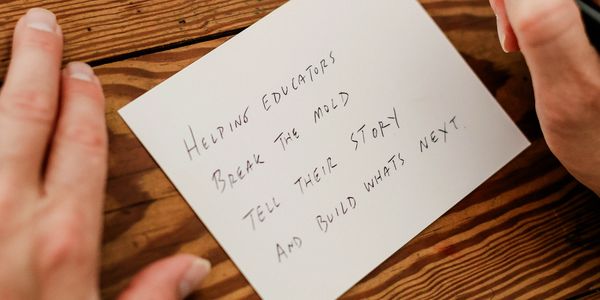 HELPING EDUCATORS
BREAK THE MOLD
TELL THEIR STORY
AND BUILD WHATS NEXT.